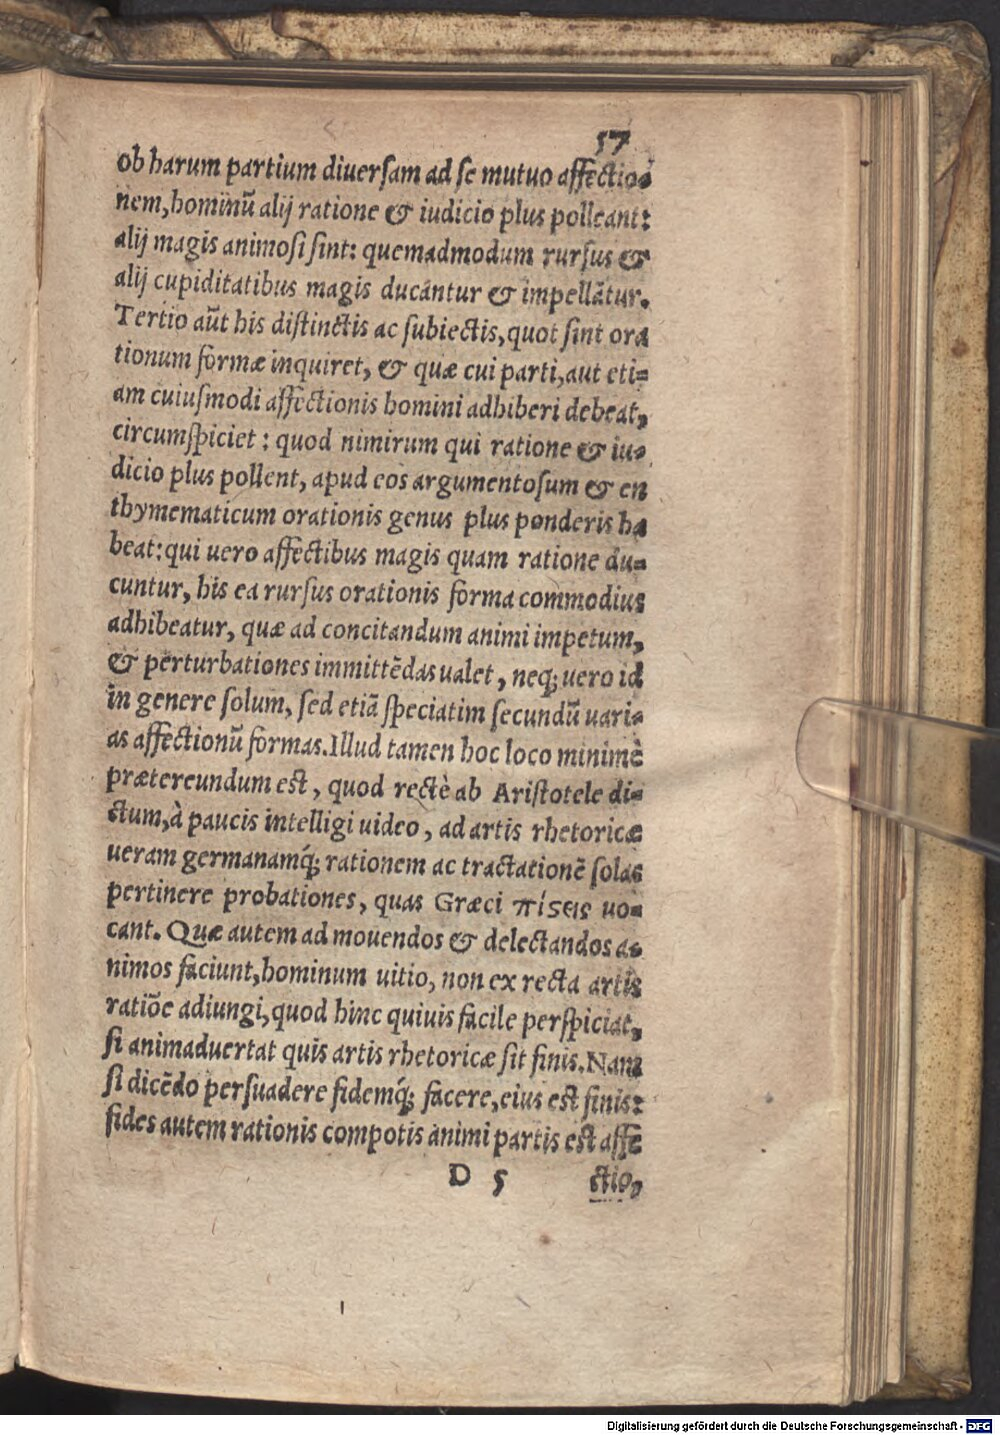 57
ob harum partium diuerſam ad ſe mutuo affectio=
nem, hominũ alij ratione & iudicio plus polleant:
alij magis animoſi ſint: quemadmodum rurſus &
alij cupiditatibus magis ducantur & impellãtur.
Tertio aũt his diſtinctis ac ſubiectis, quot ſint ora
tionum formæ inquiret, & quæ cui parti, aut eti=
am cuiuſmodi affectionis homini adhiberi debeat,
circumſpiciet: quod nimirum qui ratione & iu=
dicio plus pollent, apud eos argumentoſum & en
thymematicum orationis genus plus ponderis ha
beat: qui uero affectibus magis quam ratione du=
cuntur, his ea rurſus orationis forma commodius
adhibeatur, quæ ad concitandum animi impetum,
& perturbationes immittẽdas ualet, neq; uero id
in genere ſolum, ſed etiã ſpeciatim ſecundũ uari=
as affectionũ formas. Illud tamen hoc loco minimè
prætereundum eſt, quod rectè ab Ariſtotele di=
ctum, à paucis intelligi uideo, ad artis rhetoricæ
ueram germanamq́; rationem ac tractationẽ ſolas
pertinere probationes, quas Græci πίϛεις uo=
cant. Quæ autem ad mouendos & delectandos a=
nimos faciunt, hominum uitio, non ex recta artis
ratiõe adiungi, quod hinc quiuis facile perſpiciat,
ſi animaduertat quis artis rhetoricæ ſit finis. Nam
ſi dicẽdo perſuadere fidemq́; facere, eius eſt finis:
fides autem rationis compotis animi partis eſt affe
D 5 ctio,
Digitalisierung gefördert durch die Deutsche Forschungsgemeinschaft - DFG